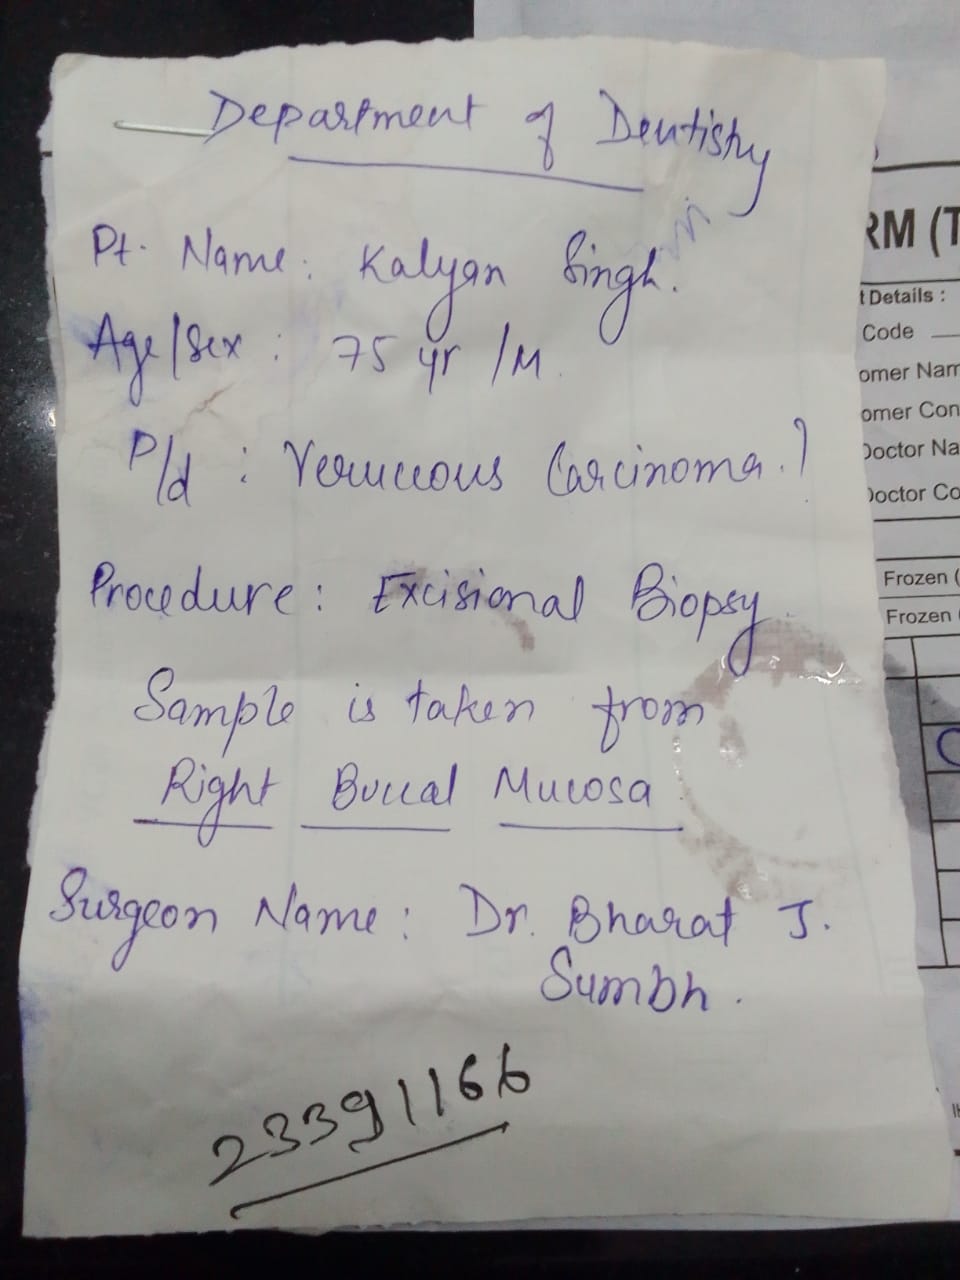 Department of Dentistry
Pt. Name: Kalyan Singh.
Age/Sex: 75 yr/M.
P/d: Verrucous Carcinoma.?
Procedure: Excisional Biopsy.
Sample is taken from
Right Buccal Mucosa.
Surgeon Name: Dr. Bharat J.
Sumbh.
23391166
RM (T
t Details :
Code
omer Nam
omer Con
Doctor Na
Doctor Co
Frozen (
Frozen